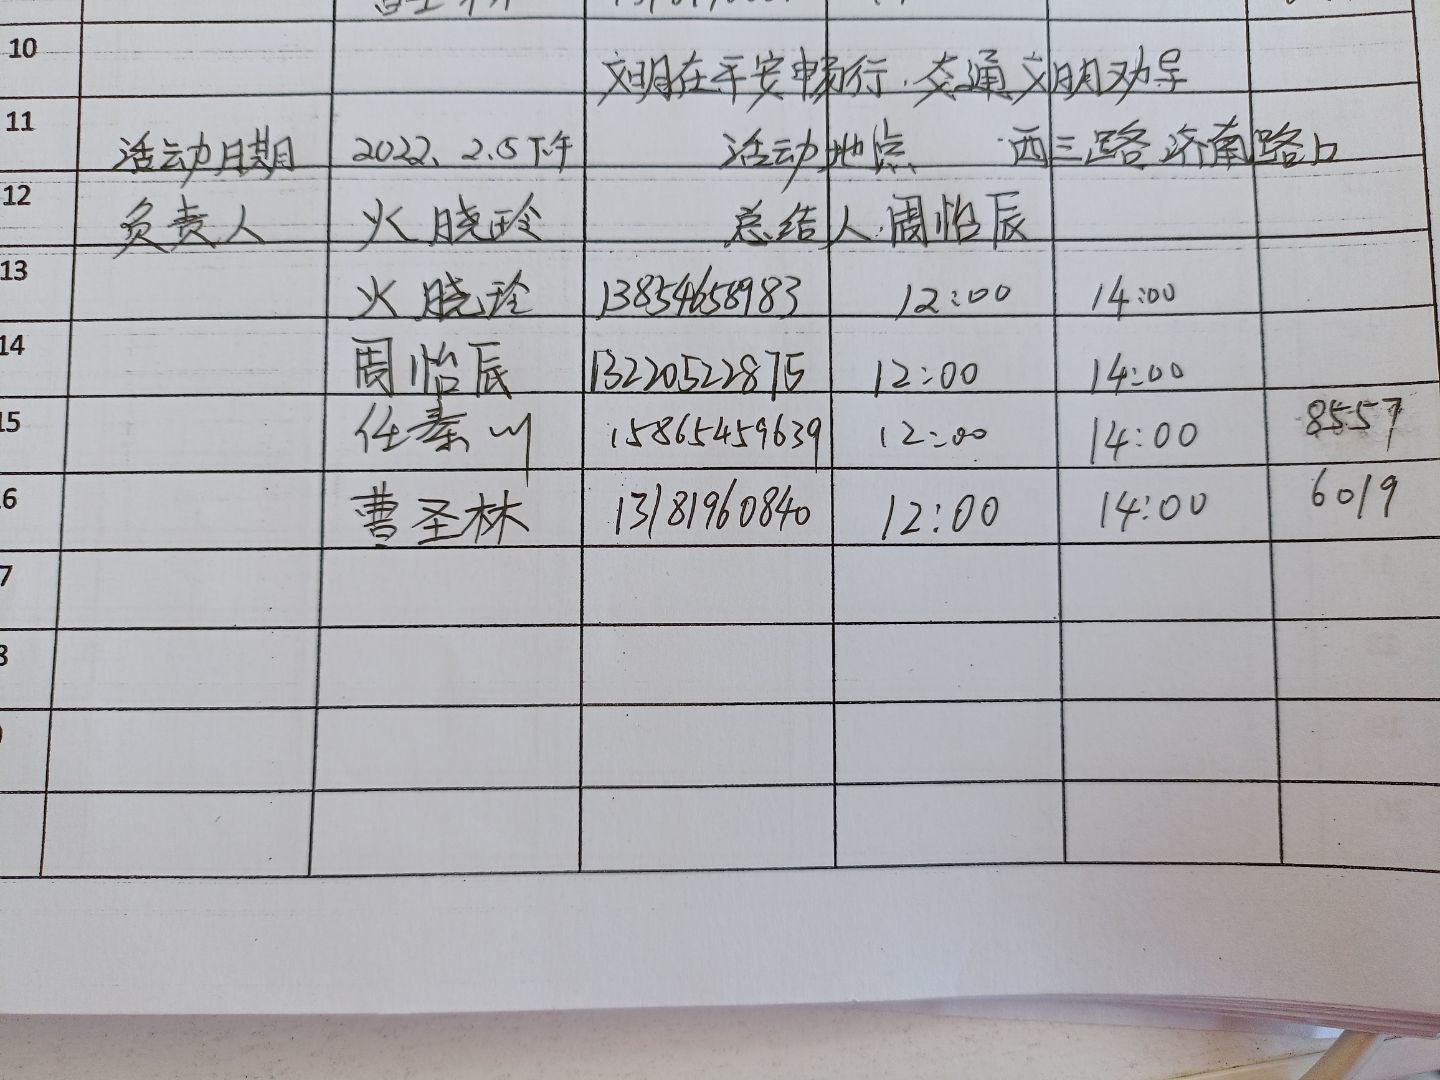 10 文明在平安畅行.交通文明劝导
11 活动日期 2022、2.5下午 活动地点 西三路济南路口
12 负责人 火晓玲 总结人:周怡辰
13 火晓玲 13854658983 12:00 14:00
14 周怡辰 13220522875 12:00 14:00
15 任秦川 15865459639 12:00 14:00 8557
6 曹圣林 13181960840 12:00 14:00 6019
7
8